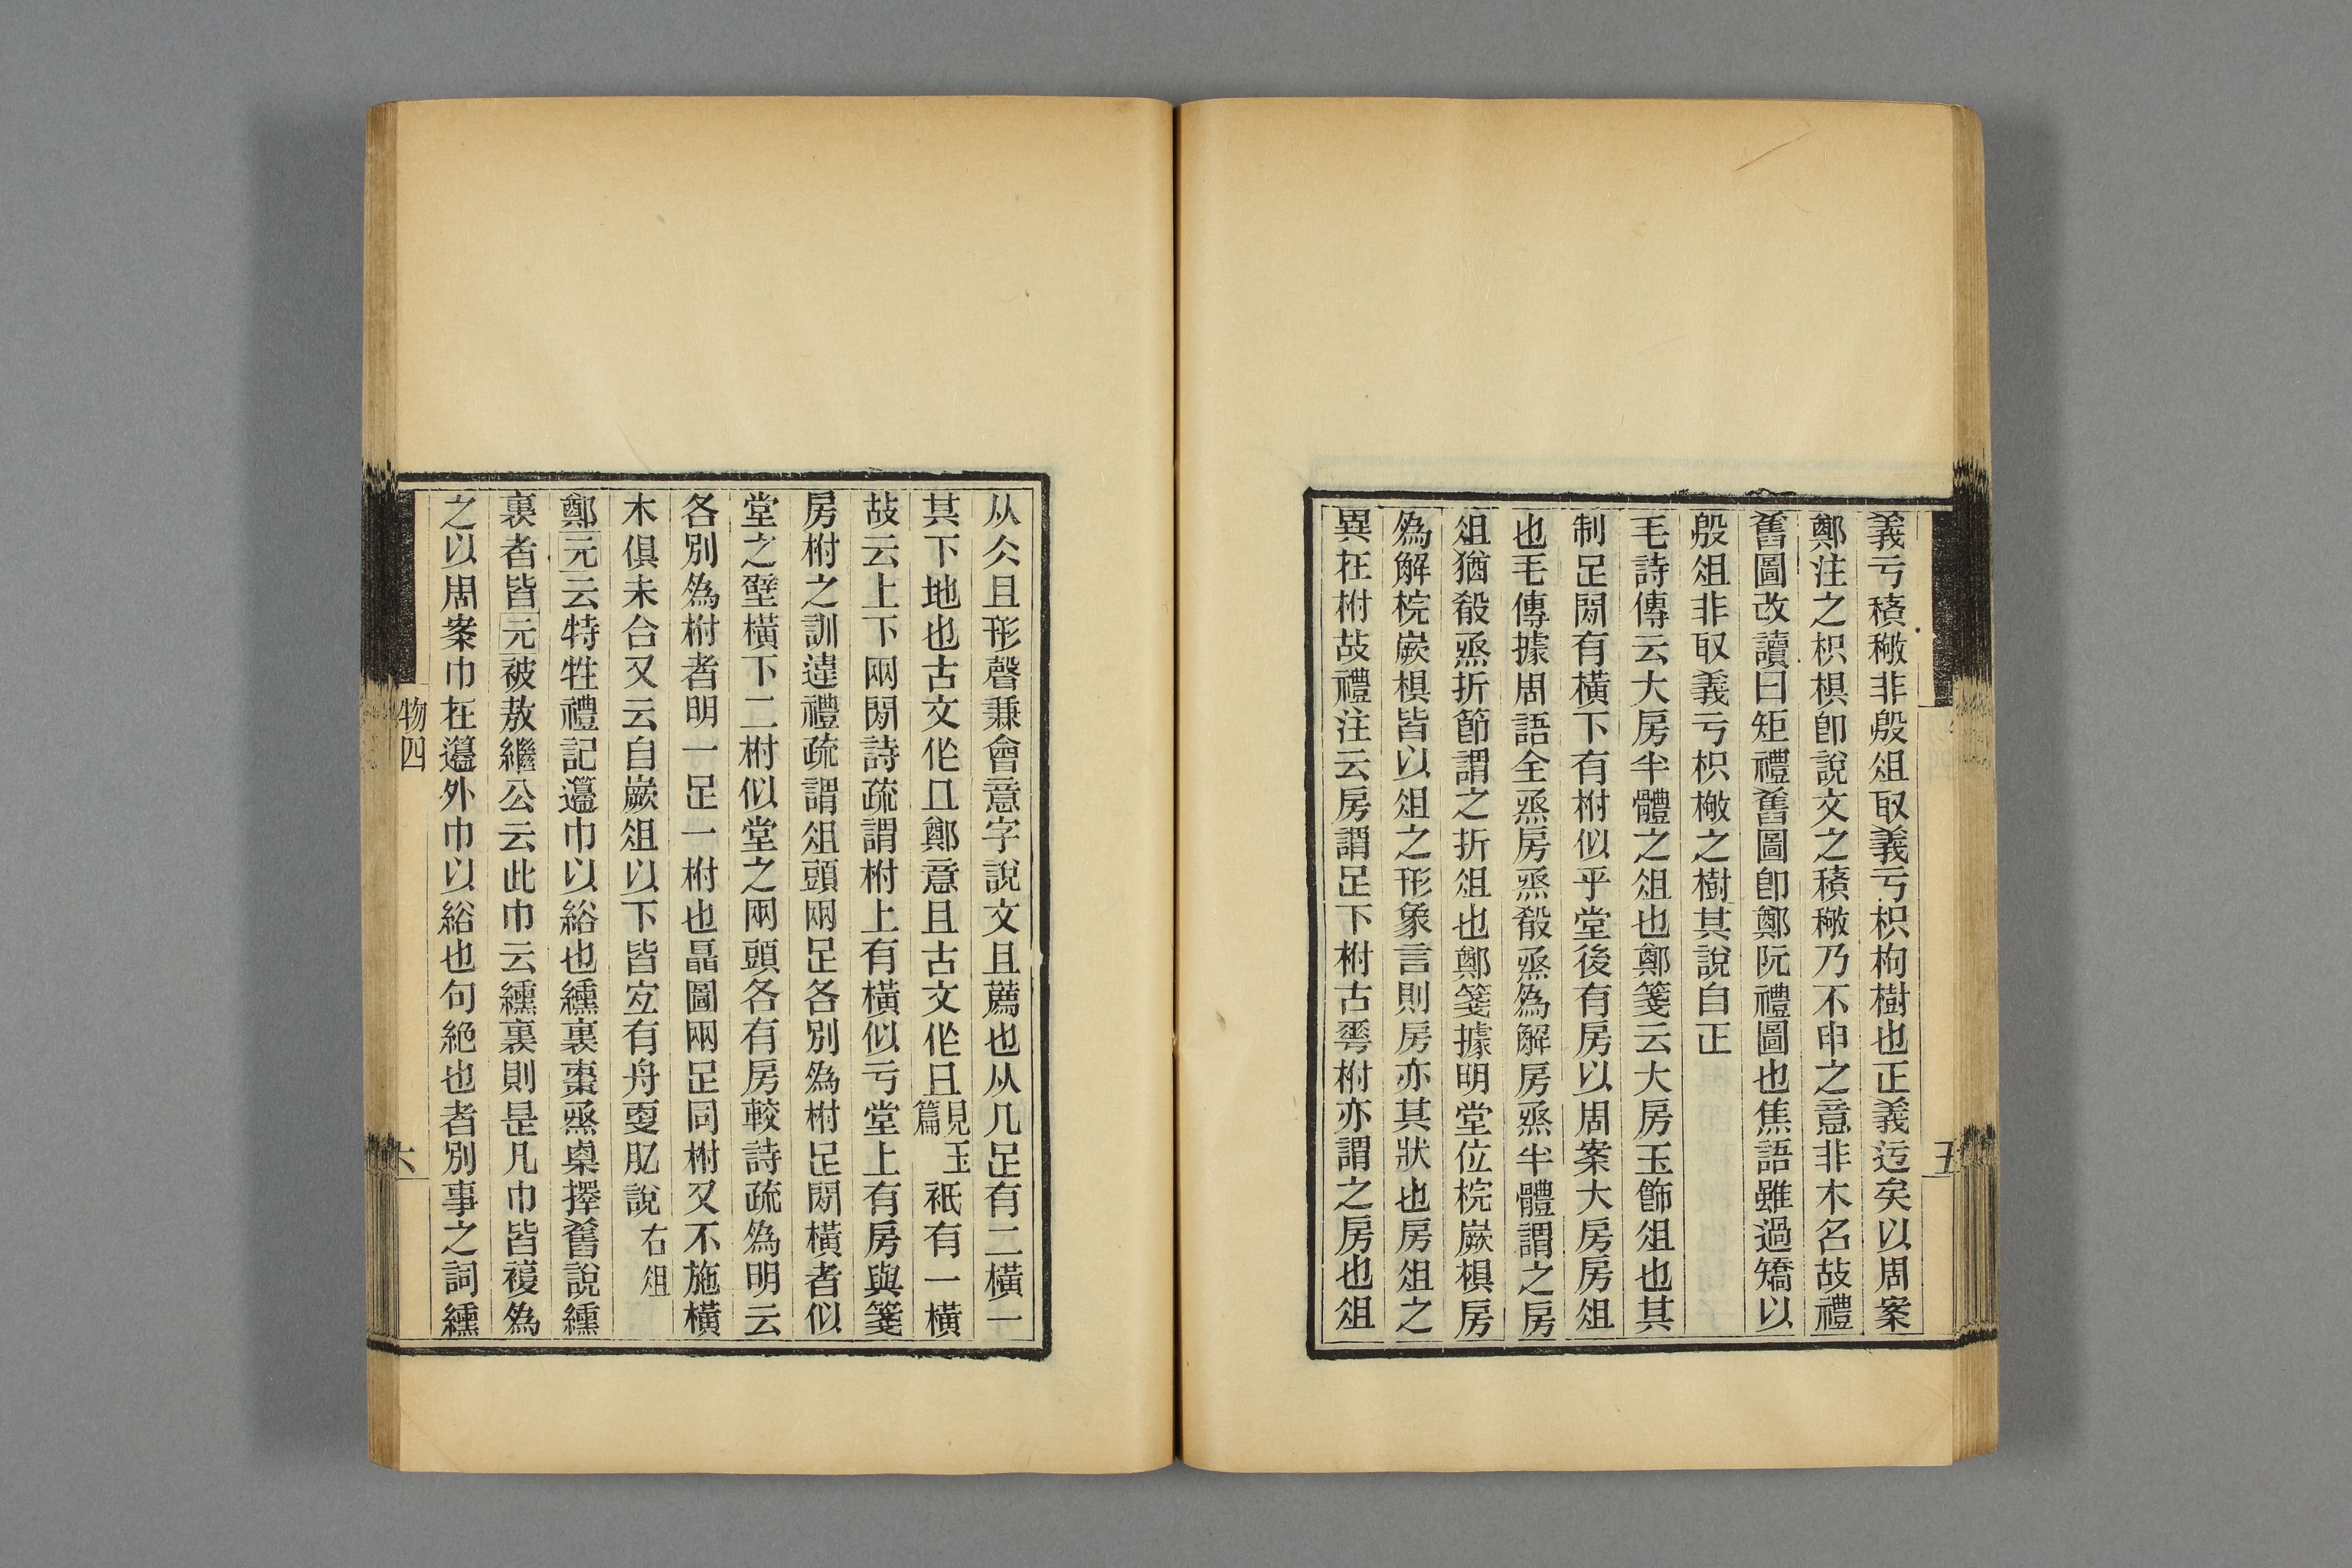 義亏䅩𥡴非殷俎取義亏枳枸樹也正義迃矣以周案
鄭注之枳椇卽說文之䅩𥡴乃不申之意非木名故禮
舊圖改讀曰矩禮舊圖卽鄭阮禮圖也焦語雖過矯以
殷俎非取義亏枳椒之樹其說自正
毛詩傳云大房半體之俎也鄭箋云大房玉飾俎也其
制足閒有橫下有柎似乎堂後有房以周案大房房俎
也毛傳據周語全烝房烝殽烝爲解房烝半體謂之房
俎猶殽烝折節謂之折俎也鄭箋據明堂位梡嶡椇房
爲解梡嶡椇皆以俎之形象言則房亦其狀也房俎之
異在柎故禮注云房謂足下柎古萼柎亦謂之房也俎
五
从仌且形聲兼會意字說文且薦也从几足有二橫一
其下地也古文作𠀇鄭意且古文作且見玉
篇
衹有一橫
故云上下兩閒詩疏謂柎上有橫似亏堂上有房與箋
房柎之訓違禮疏謂俎頭兩足各別爲柎足閒橫者似
堂之壁橫下二柎似堂之兩頭各有房較詩疏爲明云
各別爲柎者明一足一柎也聶圖兩足同柎又不施橫
木俱未合又云自嶡俎以下皆宐有舟㪅𦘺說 右俎
鄭元云特牲禮記籩巾以綌也纁裏棗烝㮚擇舊說纁
裏者皆元被敖繼公云此巾云纁裏則是凡巾皆複爲
之以周案巾在籩外巾以綌也句絶也者別事之詞纁
物四
六